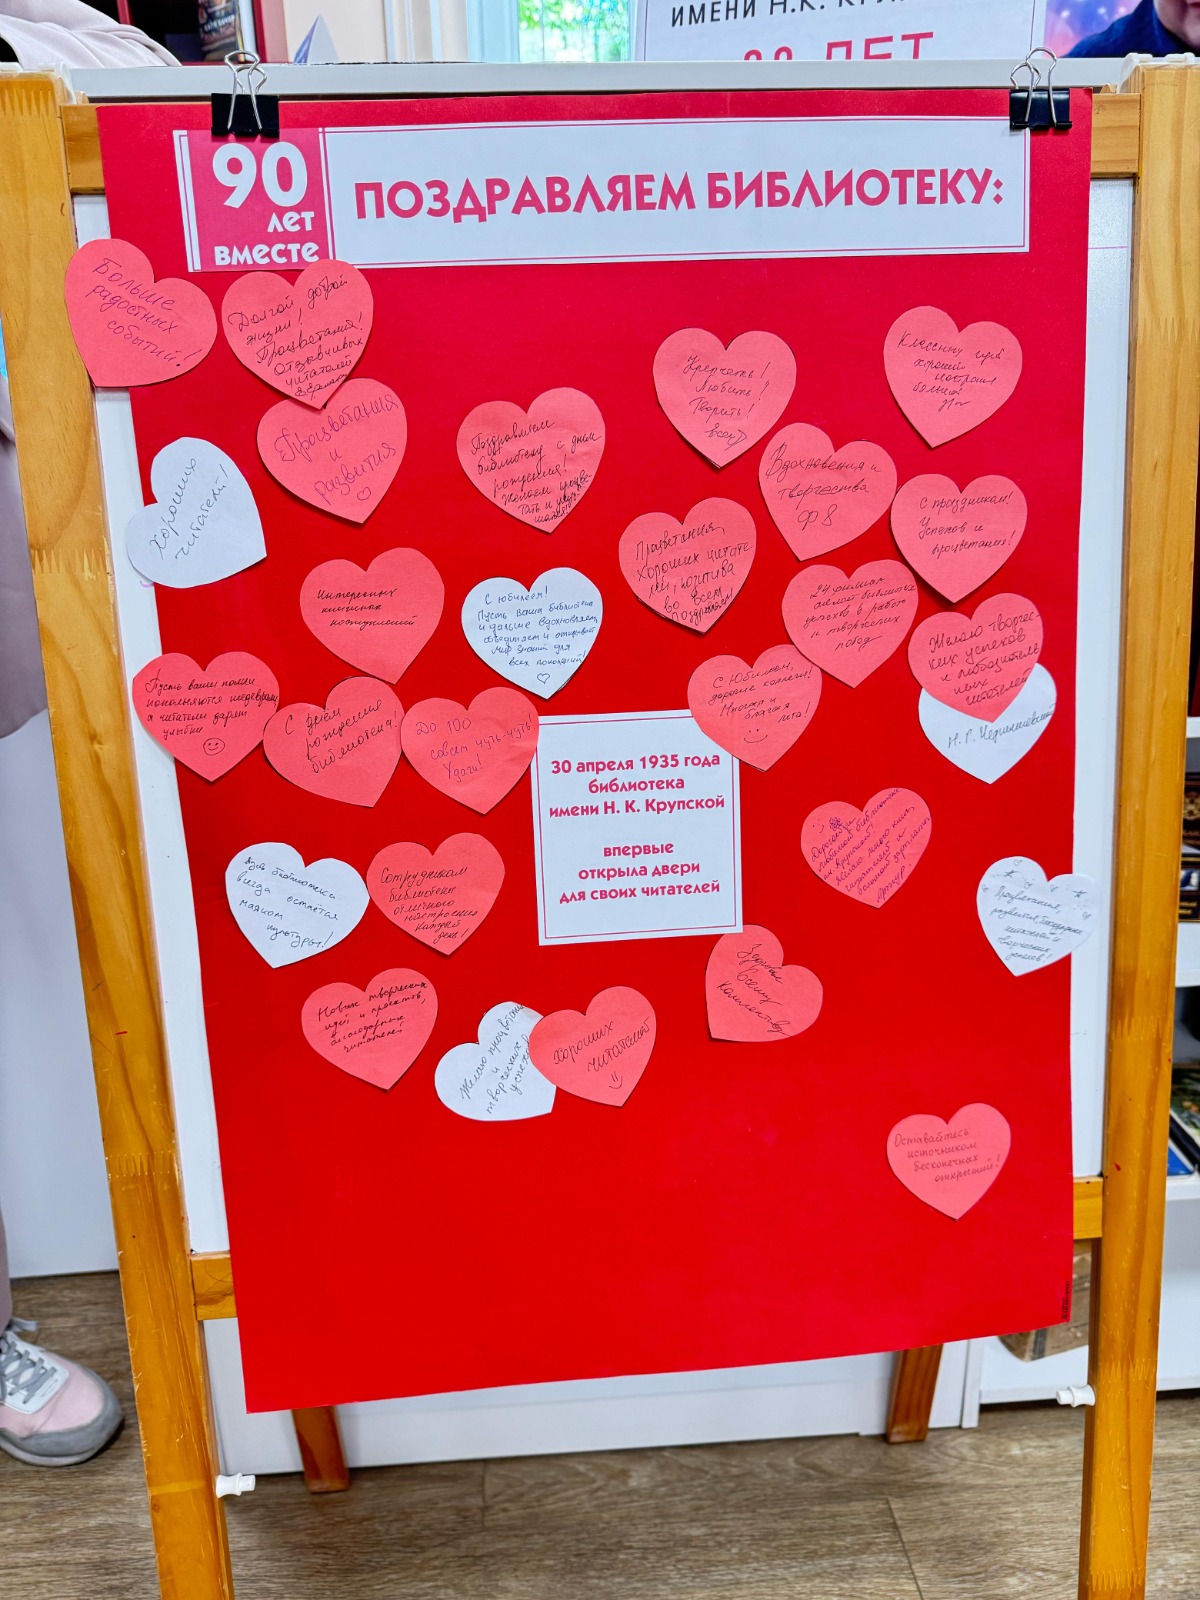 ИМЕНИ Н.К.
ЛЕТ
90
лет
вместе
ПОЗДРАВЛЯЕМ БИБЛИОТЕКУ:
Больше
радостных
событий!
Долгой доброй
жизни!
Процветания!
отзывчивых
читателей
Процветания
и
развития
хороших
читателей!
Поздравляем
библиотеку с днем
рождения!
Желаем процве-
тать и
Творить!
Любить!
всех
Классных идей
хороших
Вдохновения и
творчества
ф 8
С праздником!
Успехов и
процветания!
Процветания,
хороших читате
лей, позитива
во всем
Поздравляем
Интересных
книжных
поступлений
С юбилеем!
Пусть ваша библиотека
и дальше вдохновляет,
объединяет и открывает
мир знаний для
всех поколений!
24 филиал
желает библиотеке
успехов в работе
и творческих
побед
Желаю творчес-
ких успехов
и любознатель
ных
читателей
Н. Г. Чернышевский
Пусть ваши полки
пополняются шедеврами
а читатели дарят
улыбки
С днём
рождения
библиотека!
До 100
совсем чуть-чуть!
Удачи!
С Юбилеем,
дорогие коллеги!
Многая и
благая
лета!
30 апреля 1935 года
библиотека
имени Н. К. Крупской
впервые
открыла двери
для своих читателей
Дорогой и
любимой библиотеке
им. Крупской!
Желаю много книг,
читателей и
большой зарплаты
библиотека
всегда остаётся
маяком
культуры!
Сотрудникам
библиотеки
отличного
настроения
каждый
день!
Процветания,
развития,
читателей и
творческих
успехов!
Здоровья
всему
коллективу
Новых творческих
идей и проектов,
благодарных
читателей
Желаю процветания
и
творческих
успехов
Хороших
читателей
Оставайтесь
источником
бесконечных
открытий!